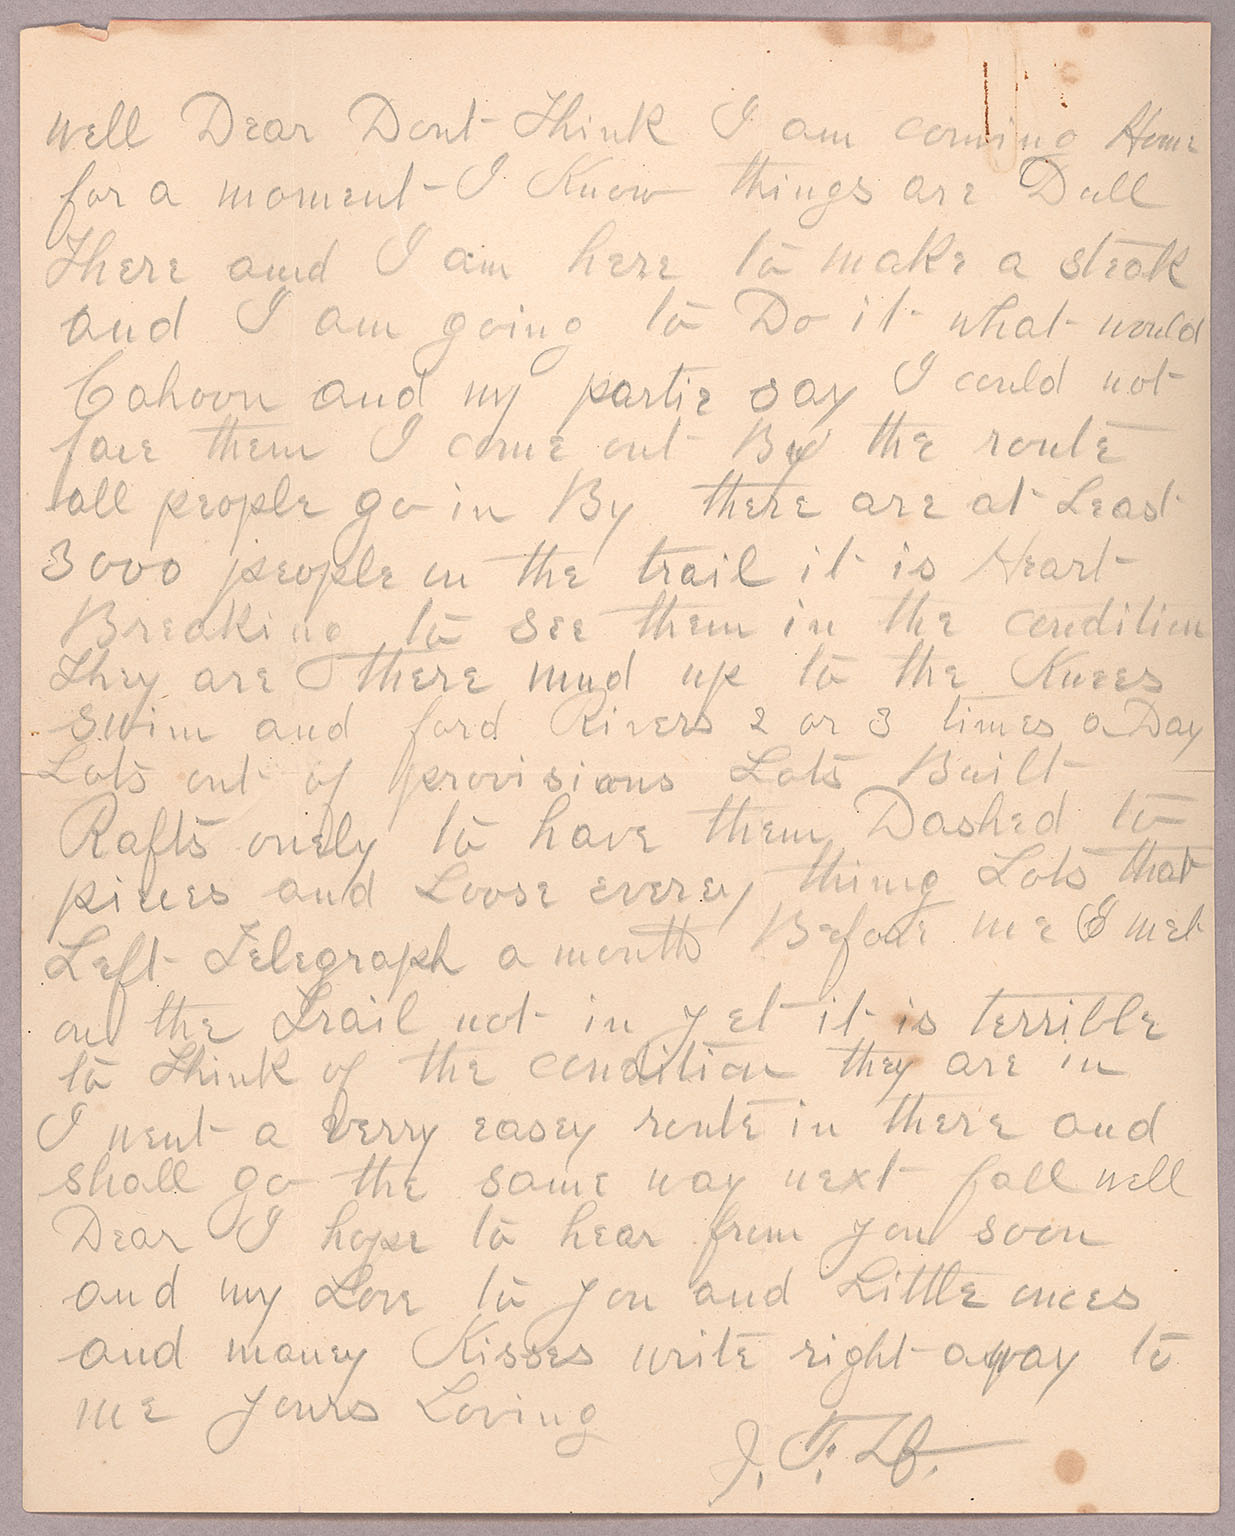 Well Dear Dont Think I am coming Home
for a moment I Know things are Dull
There amd I am here to make a steak
and I am going to Do it what would
Cahoon and my partie say I could not
face them I come out By the route
all people go in By there are at Least
3000 people on the trail it is Heart
Breaking to see them in the condition
They are there mud up to the Knees
swim and ford Rivers 2 or 3 times a Day
Lots out of provisions Lots Built
Rafts onely to have them Dashed to
pieces and Loose everey thing Lots that
Left Telegraph a month Before me I met
on the Trail not in yet it is terrible
to Think of the condition they are in
I went a verry easey route in there and
shall go the same way next fall well
Dear I hope to hear from you soon
and my Love to you and Little onces
and maney Kisses write right away to
me yours Loving
J. T.